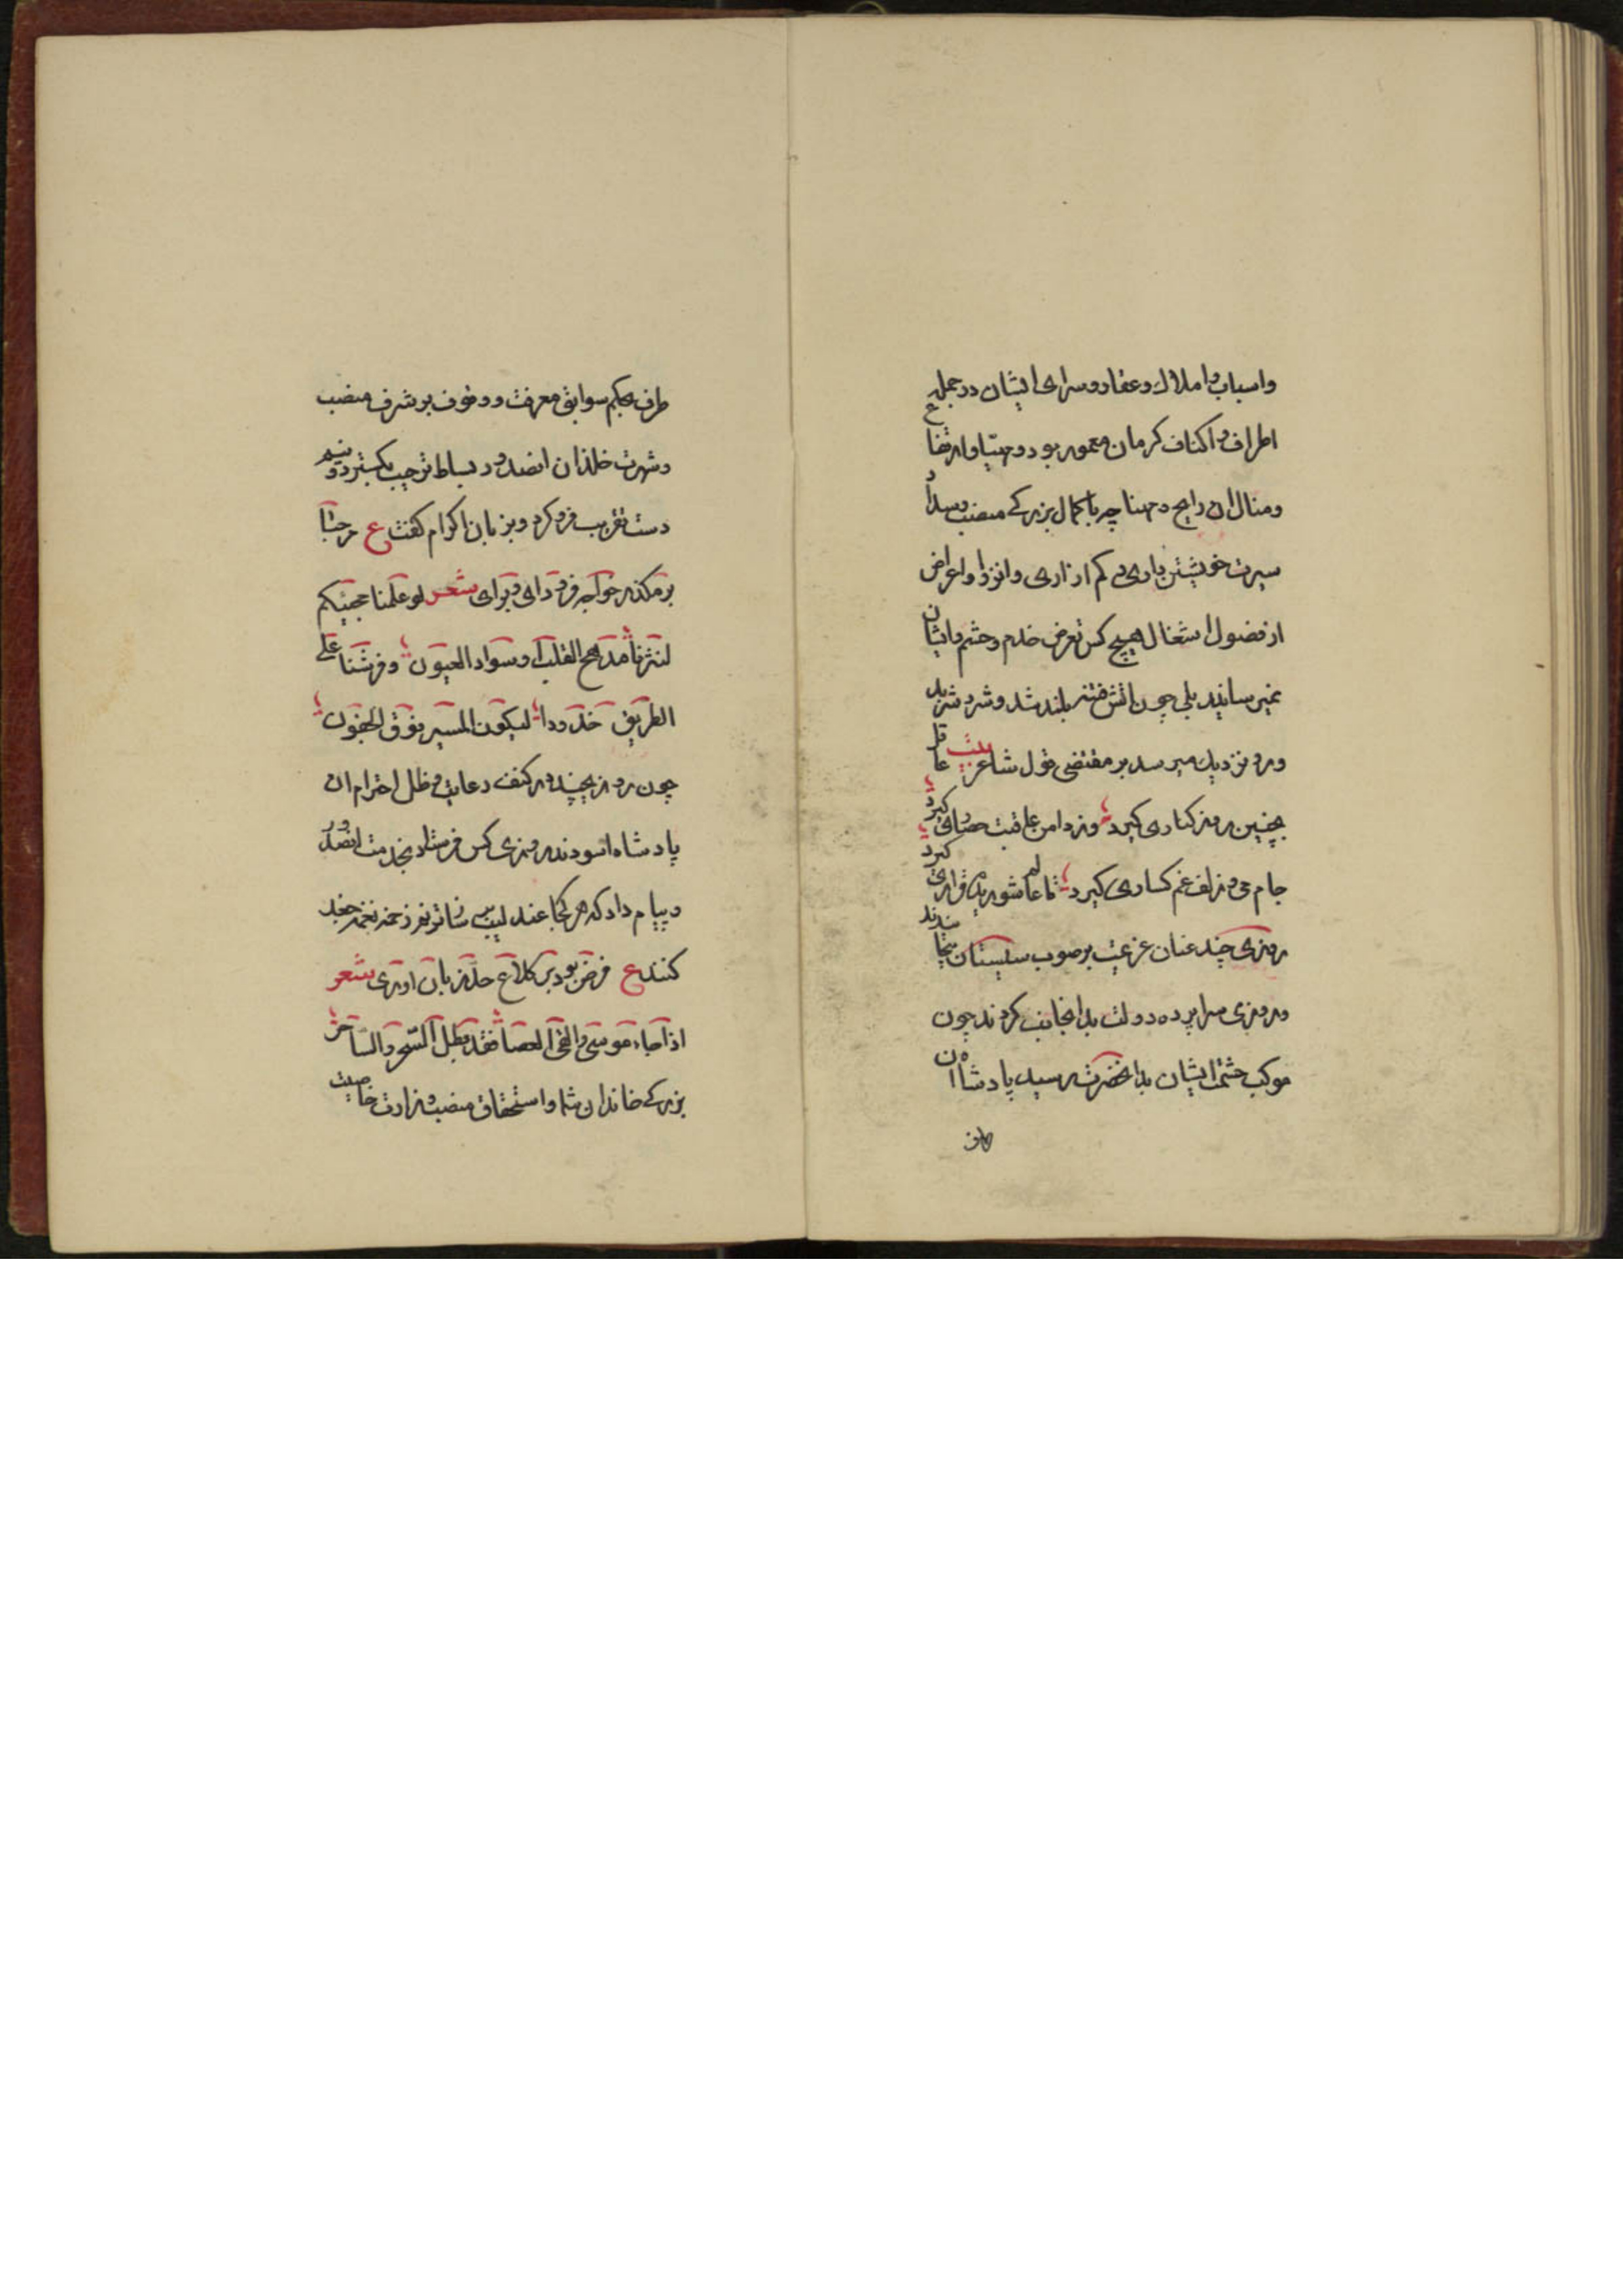 واسباب و املاك و عقار و سرای ایشان در جمله
اطراف و اکناف کرمان معمور بود و مهیا و ارتفاع
ومنال ان رایج و مهنا چه با کمال بزرکی منصب و سداد
سیرت خویشتن داری و کم ازاری و انزوا و اعراض
از فضول اشغال هیچ کس تعرض خدم و حشم ایشان
نمیرسانید بلی چون اتش فتنه بلند شد و شرد
ورود نزدیك میرسد بر مقتضی قول شاعر بیت عاقل
بچنین روز کناری کیرد وز دامن عافیت حصاری کیرد
جام می و زلف غم کساری کیرد تا عالم شوریده قراری کیرد
روزی چند عنان عزیمت بر صوب سیستان
وروزی سراپرده دولت بدانجانب کردند چون
موکب حشمت ایشان بدانحضرت رسید پادشاه ان
طرف
طرف بحکم سوابق معرفت و وقوف بر شرف منصب
وشهرت خاندان انصدور بساط ترحیب بکسترد و
دست تقریب فرو کرد و بزبان اکرام کفت ع مرحبا
برمکذر خواجه فرود ای و برای شعر لو علمنا مجیئکم
لنثرنا مهج القلب و سواد العیون وفرشنا علی
الطریق خدودا لیکون المسیر فوق الجفون
چون روز چند در کنف رعایت و ظل احترام ان
پادشاه اسودند روزی کس فرستاد بخدمت انصدور
و پیام داد که هر کجا عندلیب
کنند ع فرض بود بر کلاغ زبان اوری شعر
اذا جاء موسی والقی العصا فقد بطل السحر والساحر
بزرکی خاندان شما و استحقاق منصب وزارت